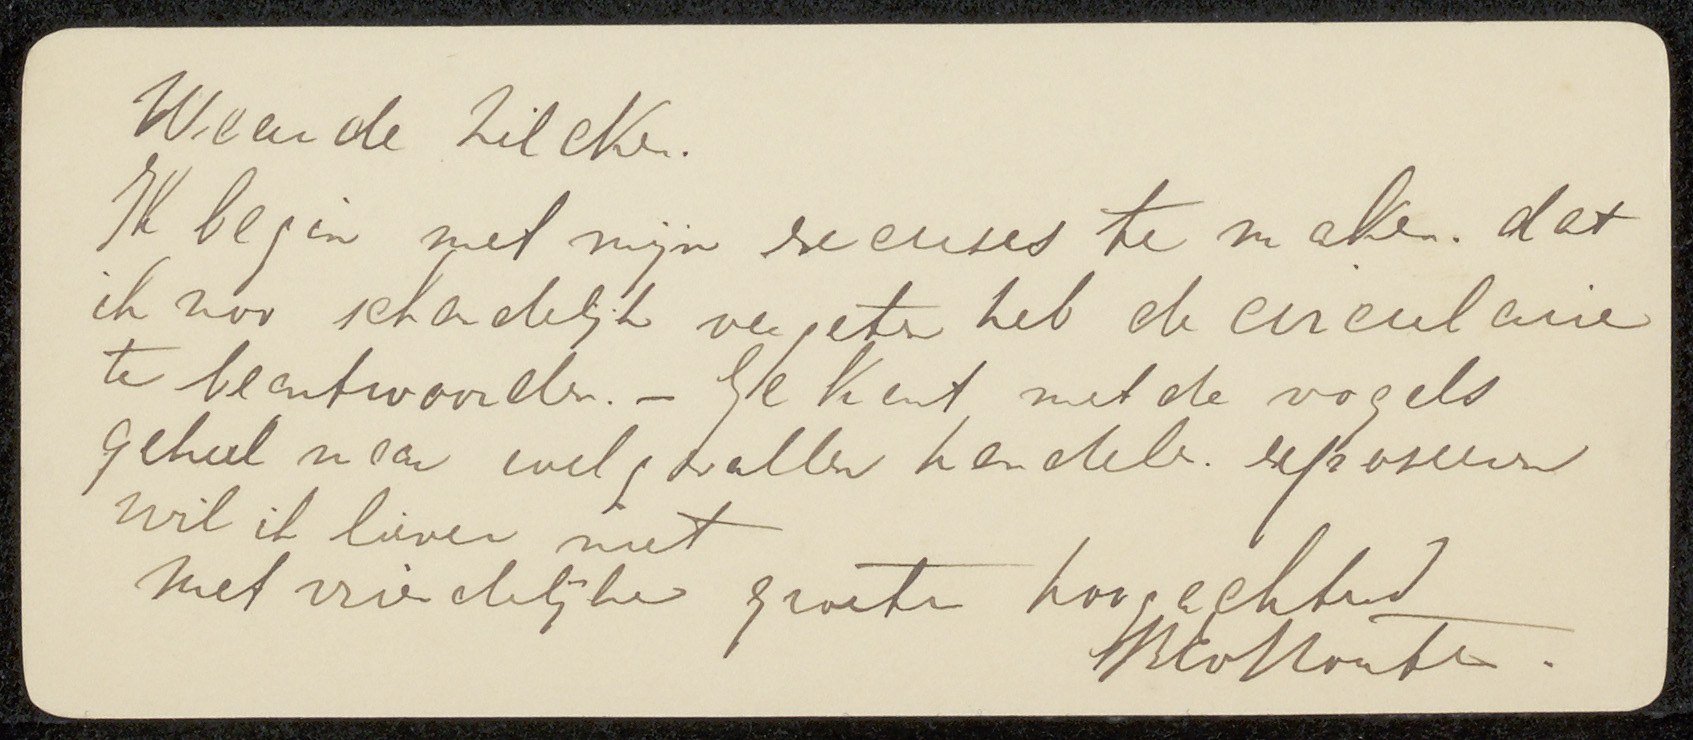 Waarde Zilcken.
Ik begin met mijn excuses te maken. dat
ik zoo schandelijk vergeten heb de circulaire
te beantwoorden. – Ge kunt met de vogels
geheel naar welgevallen handelen. exposeeren
wil ik liever niet
Met vriendelijke groeten hoogachtend